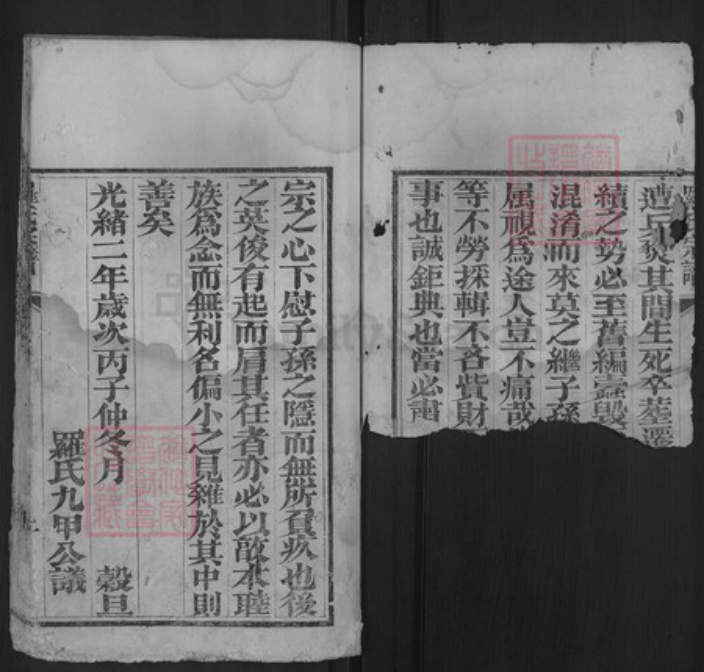 遭兵燹其間生死卒塟遷
續之勢必至舊編蠧毁
混淆而來莫之繼子孫
属視爲途人豈不痛哉
等不勞採輯不吝貲財
事也誠鉅典也當必肅
宗之心下慰子孫之隱而無所負疚也後
之英俊有起而肩其任者亦必以敵本睦
族爲念而無利名偏小之見雜於其中則
善矣
光緒二年歲次丙子仲冬月 穀旦
羅氏九甲公議